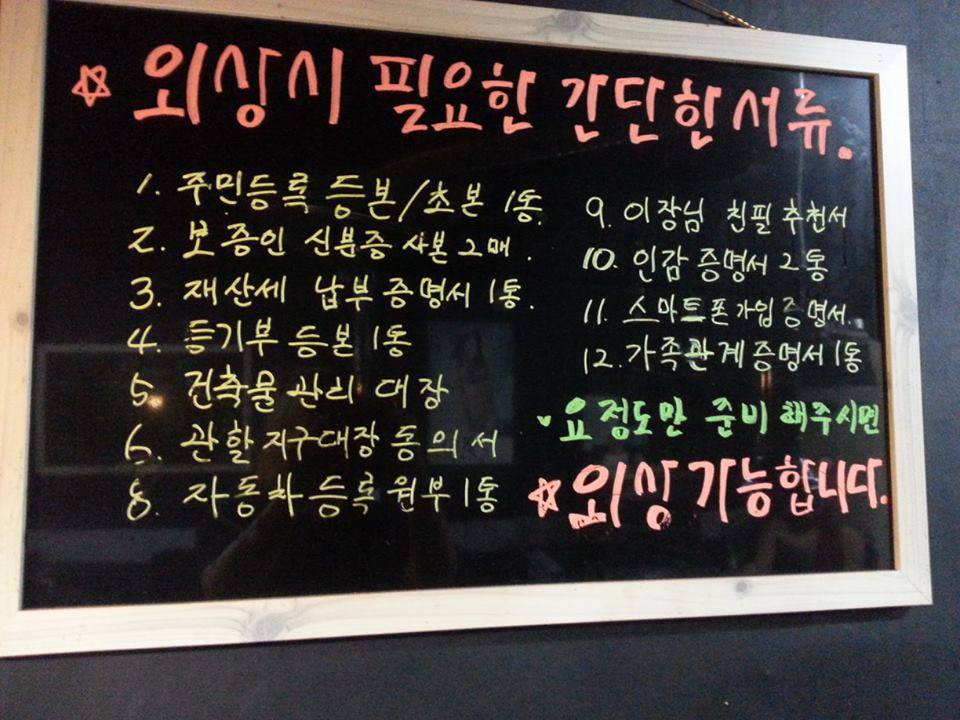 ☆ 외상시 필요한 간단한 서류.
1. 주민등록 등본/초본 1통.
2. 보증인 신분증 사본 2매.
3. 재산세 납부 증명서 1통.
4. 등기부 등본 1통
5. 건축물 관리 대장
6. 관할 지구대장 동의서
8. 자동차 등록 원부 1통
9. 이장님 친필 추천서
10. 인감 증명서 2통
11. 스마트폰 가입 증명서.
12. 가족관계 증명서 1통
요 정도만 준비 해주시면
☆ 외상 가능합니다.